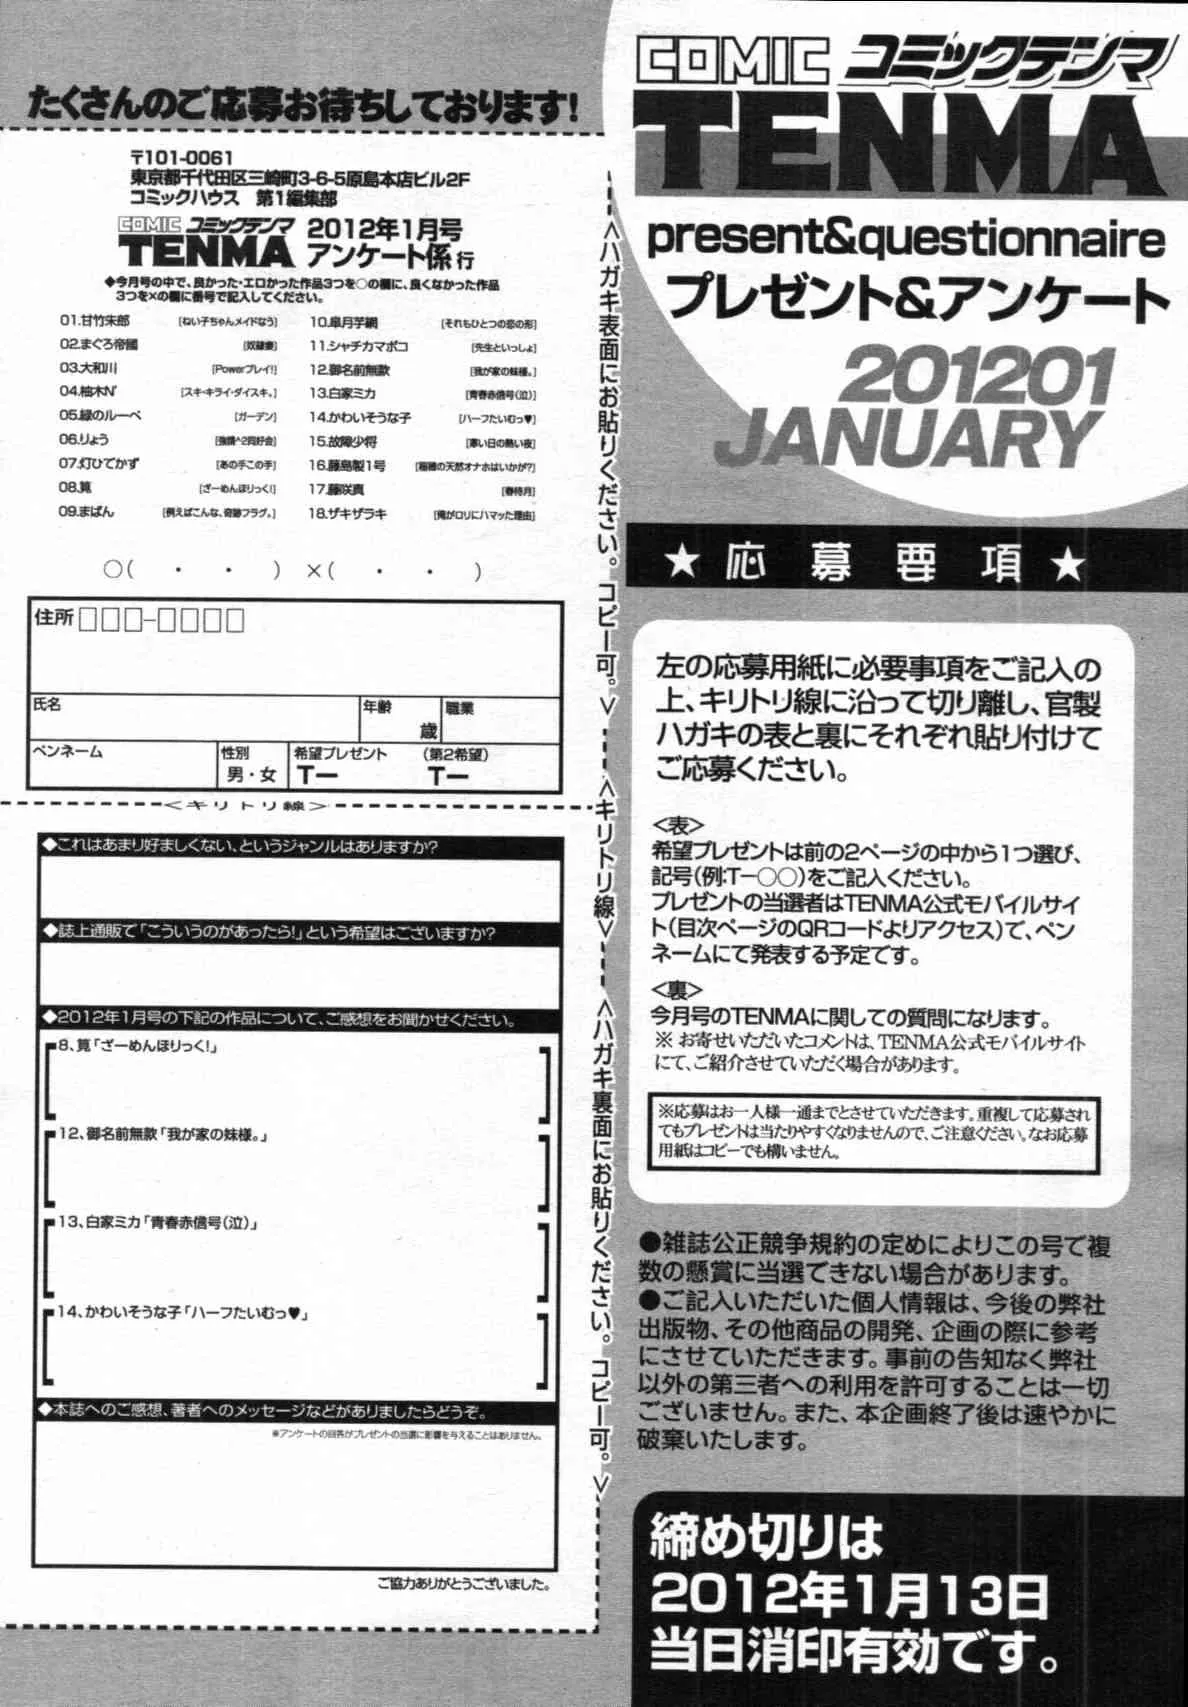 たくさんのご応募お待ちしております!
〒101-0061
東京都千代田区三崎町3-6-5原島本店ビル2F
コミックハウス 第1編集部
COMIC コミックテンマ
TENMA
2012年1月号
アンケート係 行
◆今月号の中で、良かった・エロかった作品3つを○の欄に、良くなかった作品
3つを×の欄に番号で記入してください。
01.甘竹朱郎 [ねい子ちゃんメイドなう]
02.まぐろ帝國 [奴隷妻]
03.大和川 [Powerプレイ!]
04.柚木N' [スキ・キライ・ダイスキ。]
05.緑のルーペ [ガーデン]
06.りょう [強請^2同好会]
07.灯ひでかず [あの手この手]
08.筧 [ざーめんほりっく!]
09.まぱん [例えばこんな、奇跡フラグ。]
10.皐月芋網 [それもひとつの恋の形]
11.シャチカマボコ [先生といっしょ]
12.御名前無款 [我が家の妹様。]
13.白家ミカ [青春赤信号(泣)]
14.かわいそうな子 [ハーフたいむっ♥]
15.故障少将 [寒い日の熱い夜]
16.藤島製1号 [の天然オナホはいかが?]
17.藤咲真 [春待月]
18.ザキザラキ [俺がロリにハマッた理由]
○( ・ ・ ) ×( ・ ・ )
住所 □□□-□□□□
氏名 年齢 歳 職業
ペンネーム 性別 男・女 希望プレゼント Tー (第2希望) Tー
<キリトリ線>
◆これはあまり好ましくない、というジャンルはありますか?
◆誌上通販で「こういうのがあったら!」という希望はございますか?
◆2012年1月号の下記の作品について、ご感想をお聞かせください。
8、筧「ざーめんほりっく!」
12、御名前無款「我が家の妹様。」
13、白家ミカ「青春赤信号(泣)」
14、かわいそうな子「ハーフたいむっ♥」
◆本誌へのご感想、著者へのメッセージなどがありましたらどうぞ。
※アンケートの回答がプレゼントの当選に影響を与えることはありません。
ご協力ありがとうございました。
<ハガキ表面にお貼りください。コピー可。>
<キリトリ線>
<ハガキ裏面にお貼りください。コピー可。>
COMIC コミックテンマ
TENMA
present&questionnaire
プレゼント&アンケート
201201
JANUARY
★応募要項★
左の応募用紙に必要事項をご記入の
上、キリトリ線に沿って切り離し、官製
ハガキの表と裏にそれぞれ貼り付けて
ご応募ください。
<表>
希望プレゼントは前の2ページの中から1つ選び、
記号(例:T－○○)をご記入ください。
プレゼントの当選者はTENMA公式モバイルサイ
ト(目次ページのQRコードよりアクセス)で、ペン
ネームにて発表する予定です。
<裏>
今月号のTENMAに関しての質問になります。
※ お寄せいただいたコメントは、TENMA公式モバイルサイト
にて、ご紹介させていただく場合があります。
※応募はお一人様一通までとさせていただきます。重複して応募され
てもプレゼントは当たりやすくなりませんので、ご注意ください。なお応募
用紙はコピーでも構いません。
●雑誌公正競争規約の定めによりこの号で複
数の懸賞に当選できない場合があります。
●ご記入いただいた個人情報は、今後の弊社
出版物、その他商品の開発、企画の際に参考
にさせていただきます。事前の告知なく弊社
以外の第三者への利用を許可することは一切
ございません。また、本企画終了後は速やかに
破棄いたします。
締め切りは
2012年1月13日
当日消印有効です。